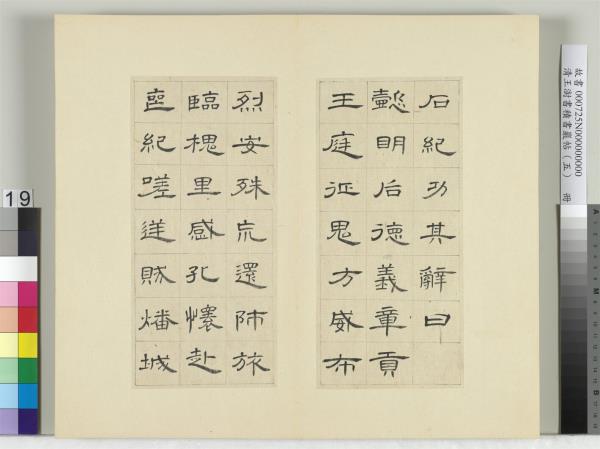 石紀功其辭曰
懿明后德義章貢
王庭征鬼方威布
烈安殊巟還師旅
臨槐里感孔懷赴
喪紀嗟逆賊燔城
故書000725N00000000
清王澍書積書巖帖(五) 冊
19
A
M
B